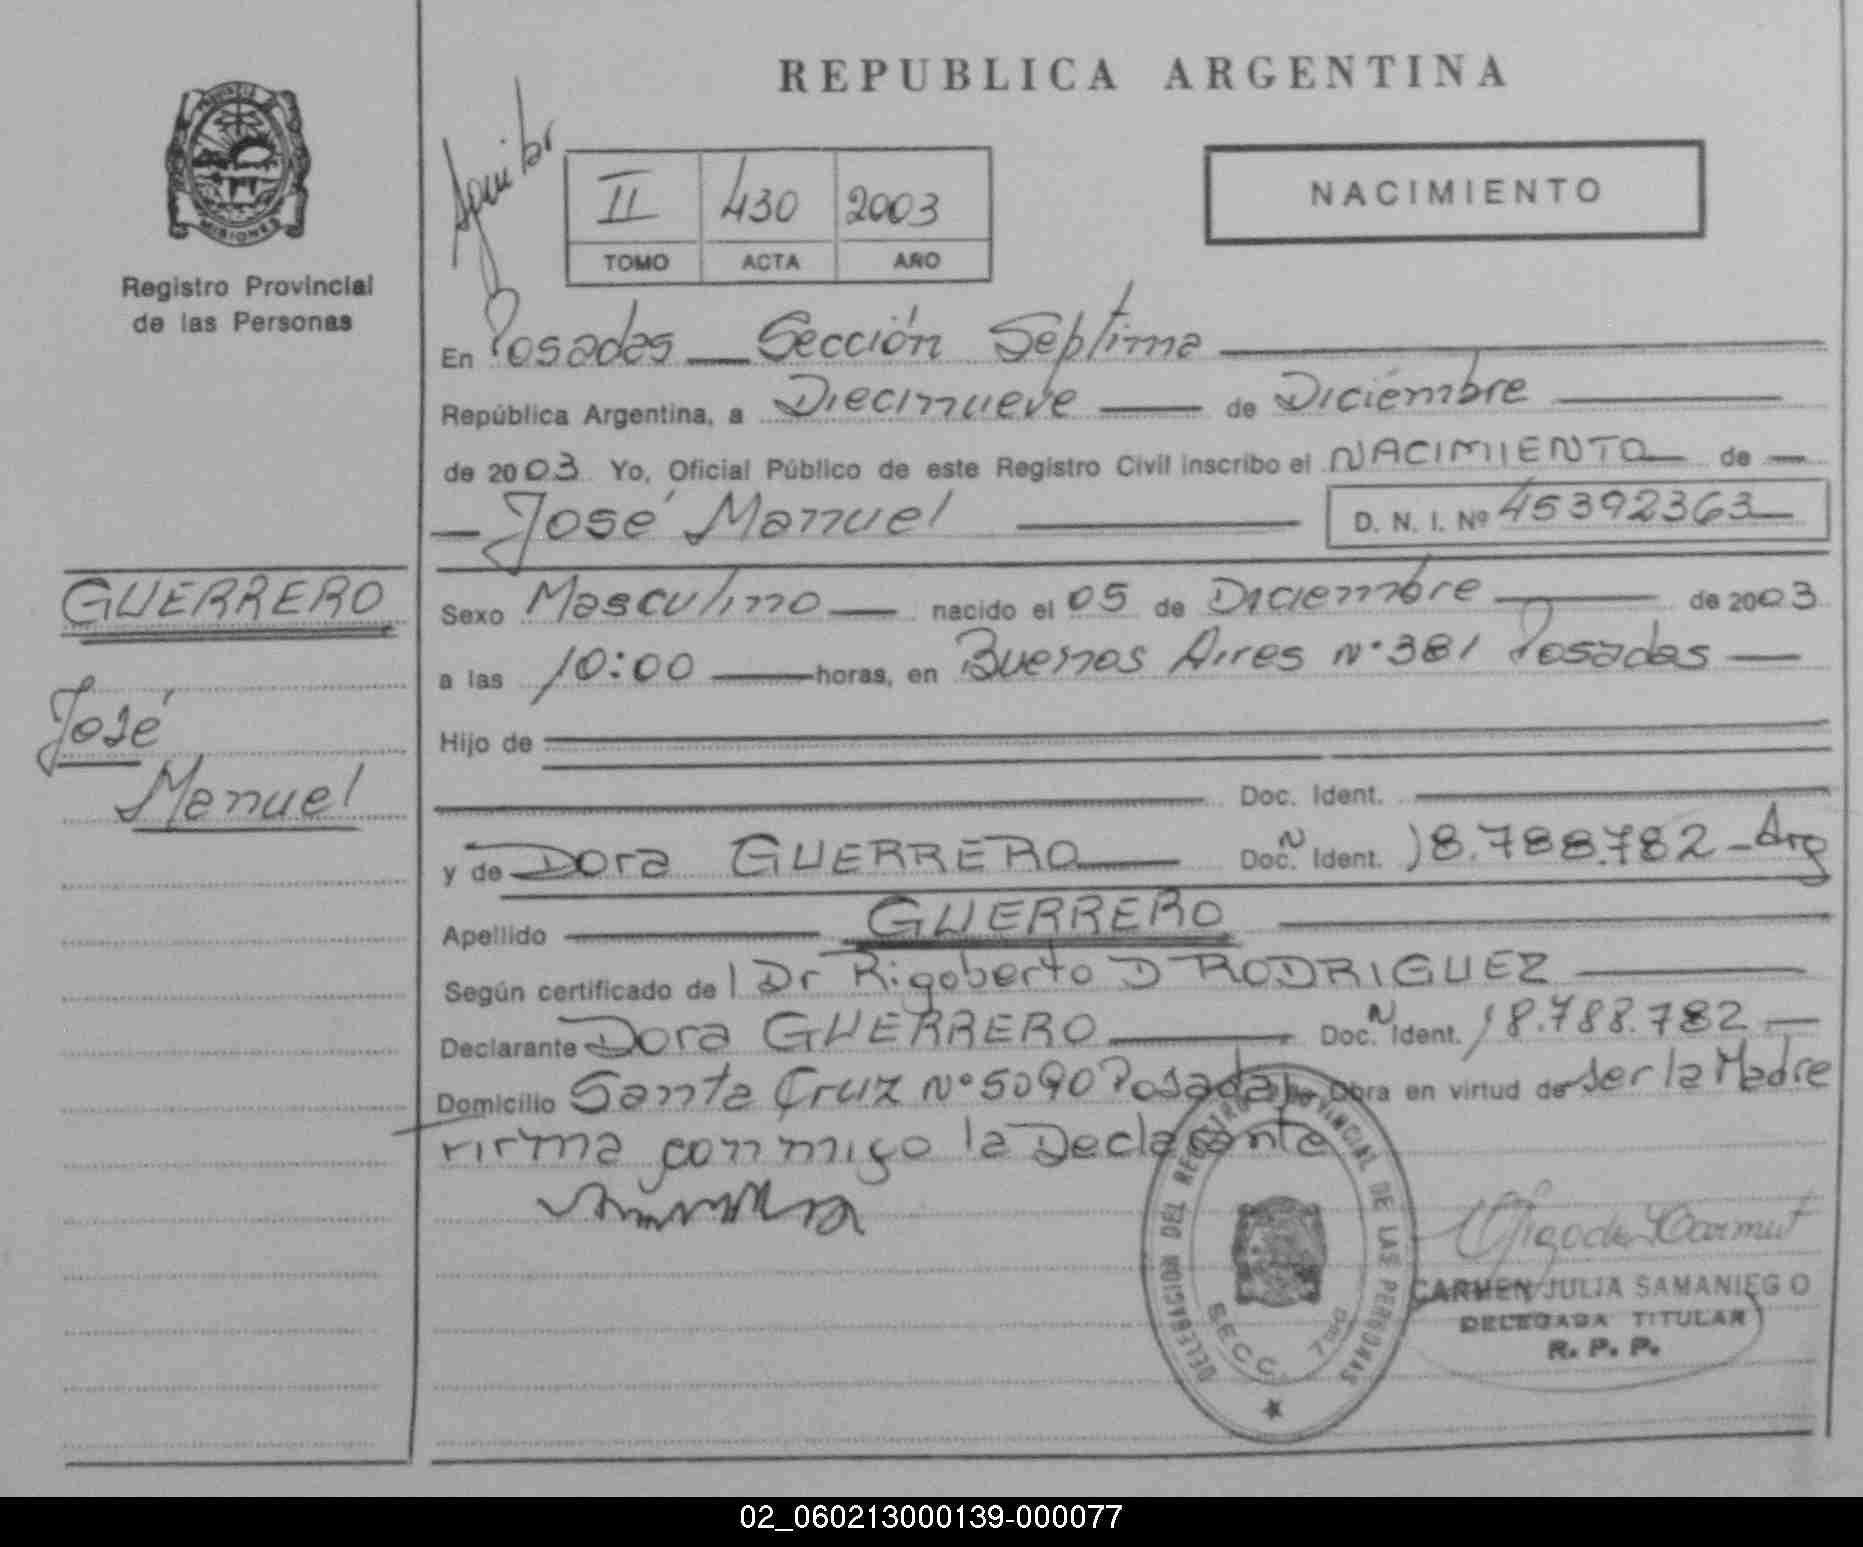 REPUBLICA ARGENTINA
PROVINCIA DE
MISIONES
Registro Provincial
de las Personas
II 430 2003
TOMO ACTA AÑO
NACIMIENTO
En Posadas — Sección Septima
República Argentina, a Diecinueve — de Diciembre
de 2003 Yo, Oficial Público de este Registro Civil inscribo el NACIMIENTO — de —
— José Manuel — D. N. I. Nº 45392363 —
GUERRERO
José
Manuel
Sexo Masculino — nacido el 05 de Diciembre — de 2003
a las 10:00 — horas, en Buenos Aires Nº 381 Posadas —
Hijo de
Doc. Ident.
y de Dora GUERRERO — Doc. N Ident. 18.788.782 - Arg
Apellido — GUERRERO —
Según certificado del Dr Rigoberto D RODRIGUEZ —
Declarante Dora GUERRERO — Doc. N Ident. 18.788.782 —
Domicilio Santa Cruz Nº 5090 Posadas Obra en virtud de ser la Madre
Firma conmigo la Declarante
DELEGACION DEL REGISTRO PROVINCIAL DE LAS PERSONAS
SECC.
CARMEN JULIA SAMANIEGO
DELEGADA TITULAR
R. P. P.
02_060213000139-000077